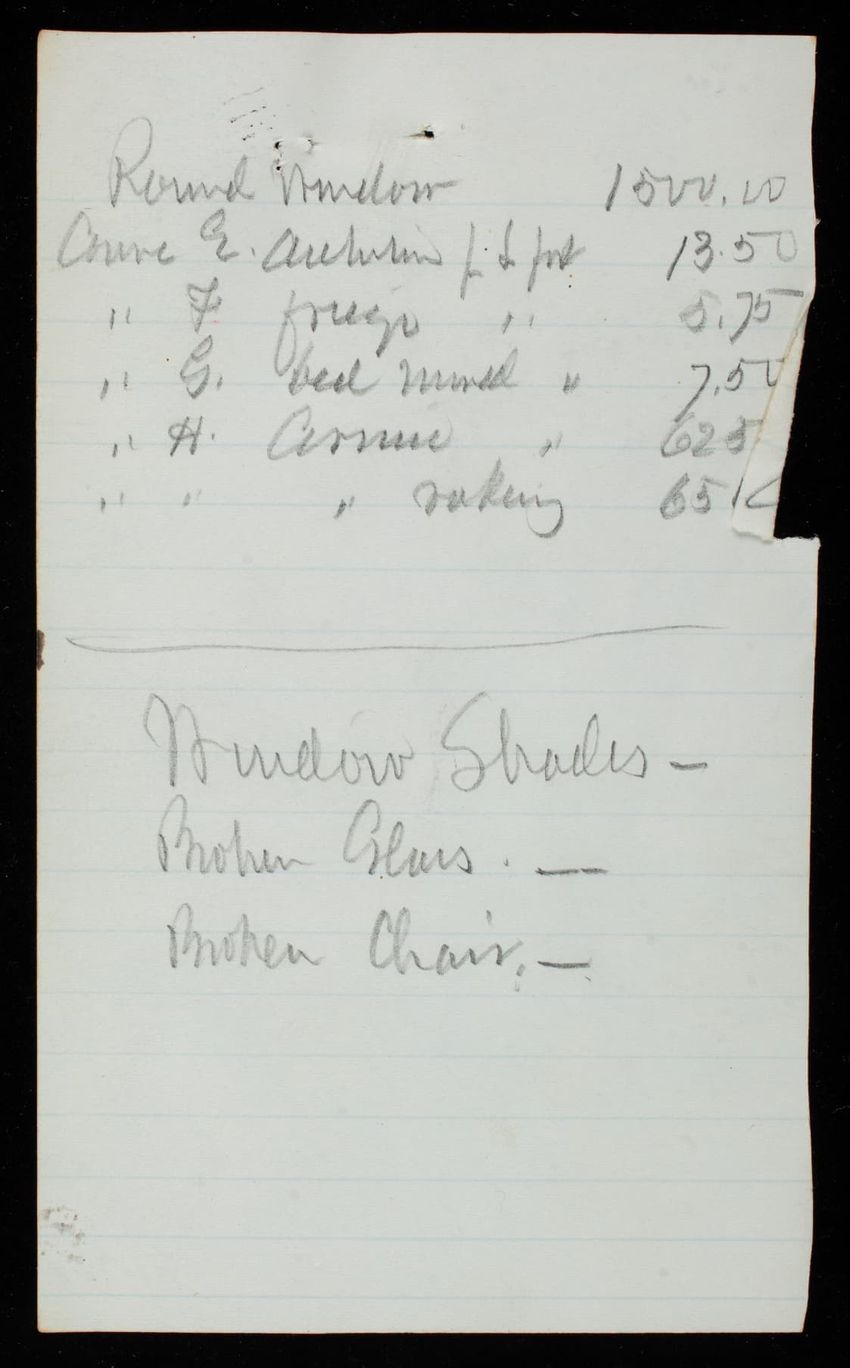 Round Window 1500.00
Course E. p. L foot 13.50
" F frieze " 5.75
" G. bed mould " 7.50
" H. "  625
" " " raking 65
Window Shades —
Broken Glass. —
Broken Chair. —